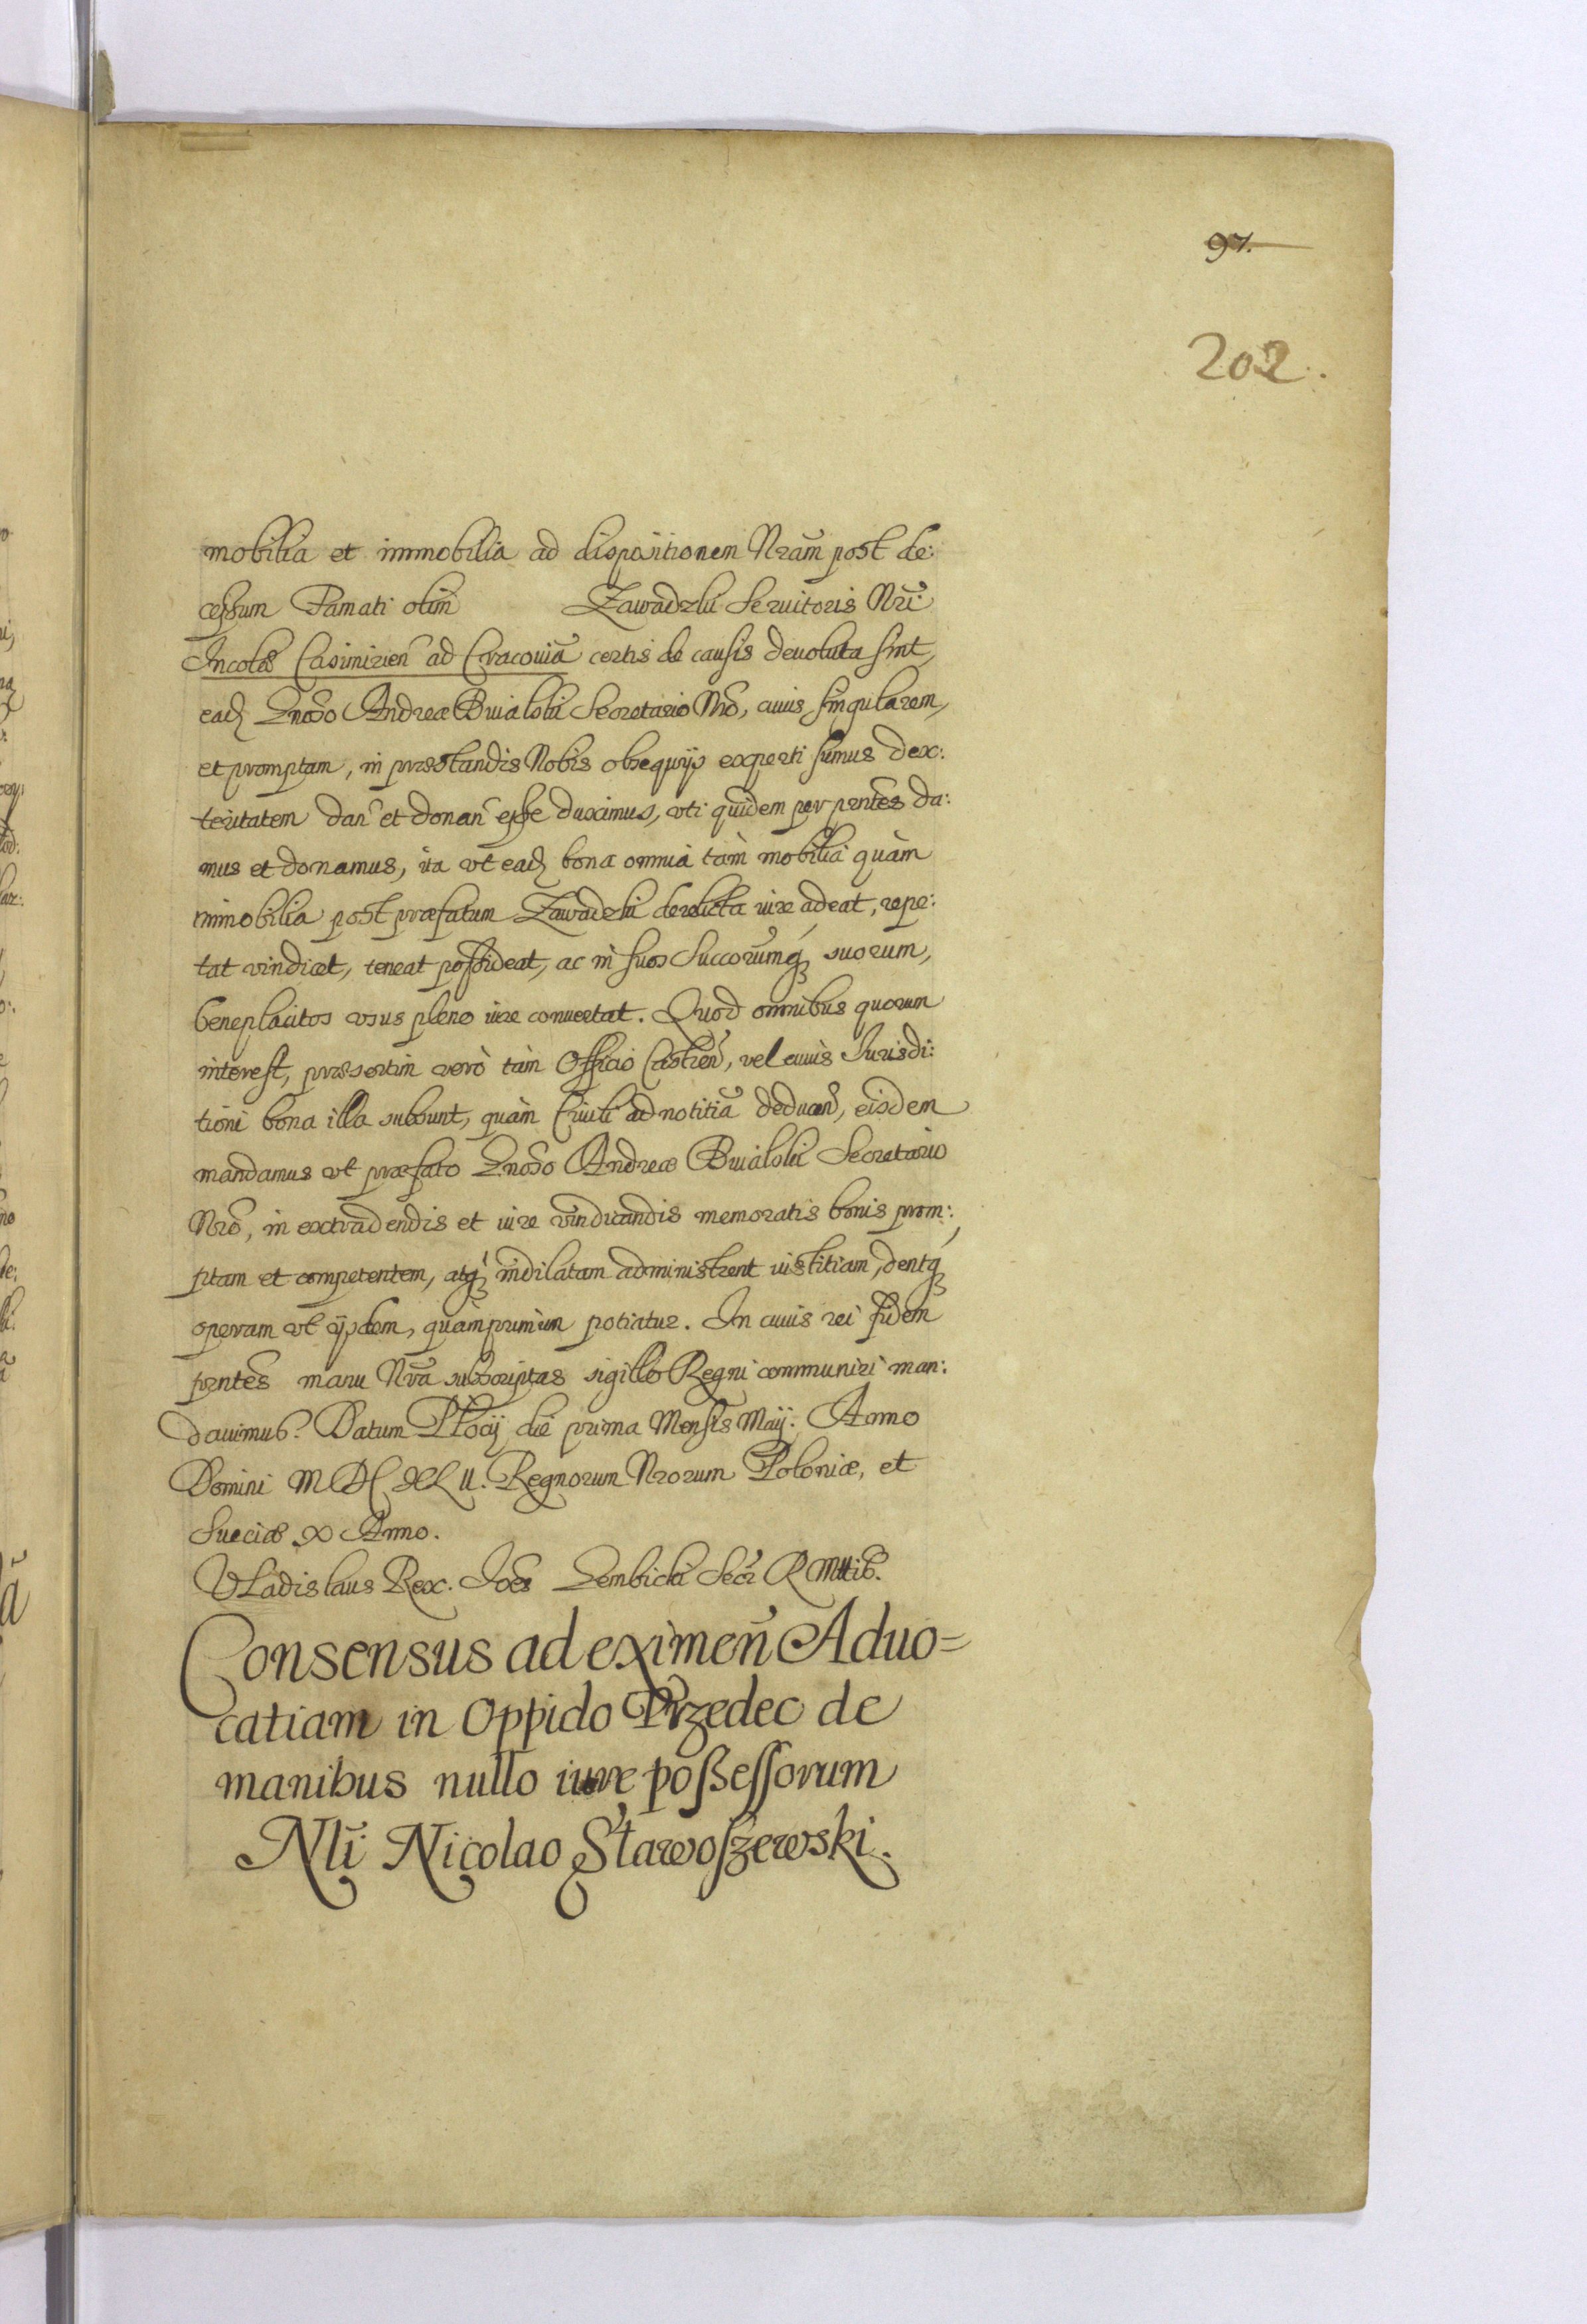 97.
202.
mobilia et immobilia ad dispositionem Nrãm post de:
cessum Famati olim Zawadzki Seruitoris Nrĩ
Incolæ Casimirień ad Cracouiã certis de causis deuoluta sint,
ead. Gnoso Andreæ Buialski Secretario Nrõ, cuius singularem,
et promptam, in præstandis Nobis obsequijs experti sumus dex:
teritatem dań et donań esse duximus, vti quidem per pñtes da:
mus et donamus, ita vt ead. bona omnia tàm mobilia quàm
immobilia post præfatum Zawadzki derelicta iure adeat, repe:
tat vindicet, teneat possideat, ac in suos Succorumq́ suorum,
beneplacitos vsus pleno iure conuertat. Quod omnibus quorum
interest, præsertim verò tàm Officio Castreń, vel cuius Jurisdi:
tioni bona illa subsunt, quàm Ciuili ad notitiã deducen̄, eisdem
mandamus vt præfato Gnoso Andreæ Buialski Secretario
Nrõ, in extradendis et iure vindicandis memoratis bonis prom:
ptam et competentem, atq́ indilatam administrent iustitiam, dentq́
operam vt ijsdem, quàmprimùm potiatur. In cuius rei fidem
pñtes manu Nrã subscriptas sigillo Regni communiri man:
dauimus. Datum Plocij die prima Mensis Maij. Anno
Domini MDCXLII. Regnorum Nrorum Poloniæ, et
Sueciæ X Anno.
Vladislaus Rex. Joẽs Gembicki Secr R Mttis.
Consensus ad eximeñ Aduo=
catiam in Oppido Przedec de
manibus nullo iure possessorum
Nli Nicolao Stawoszewski.